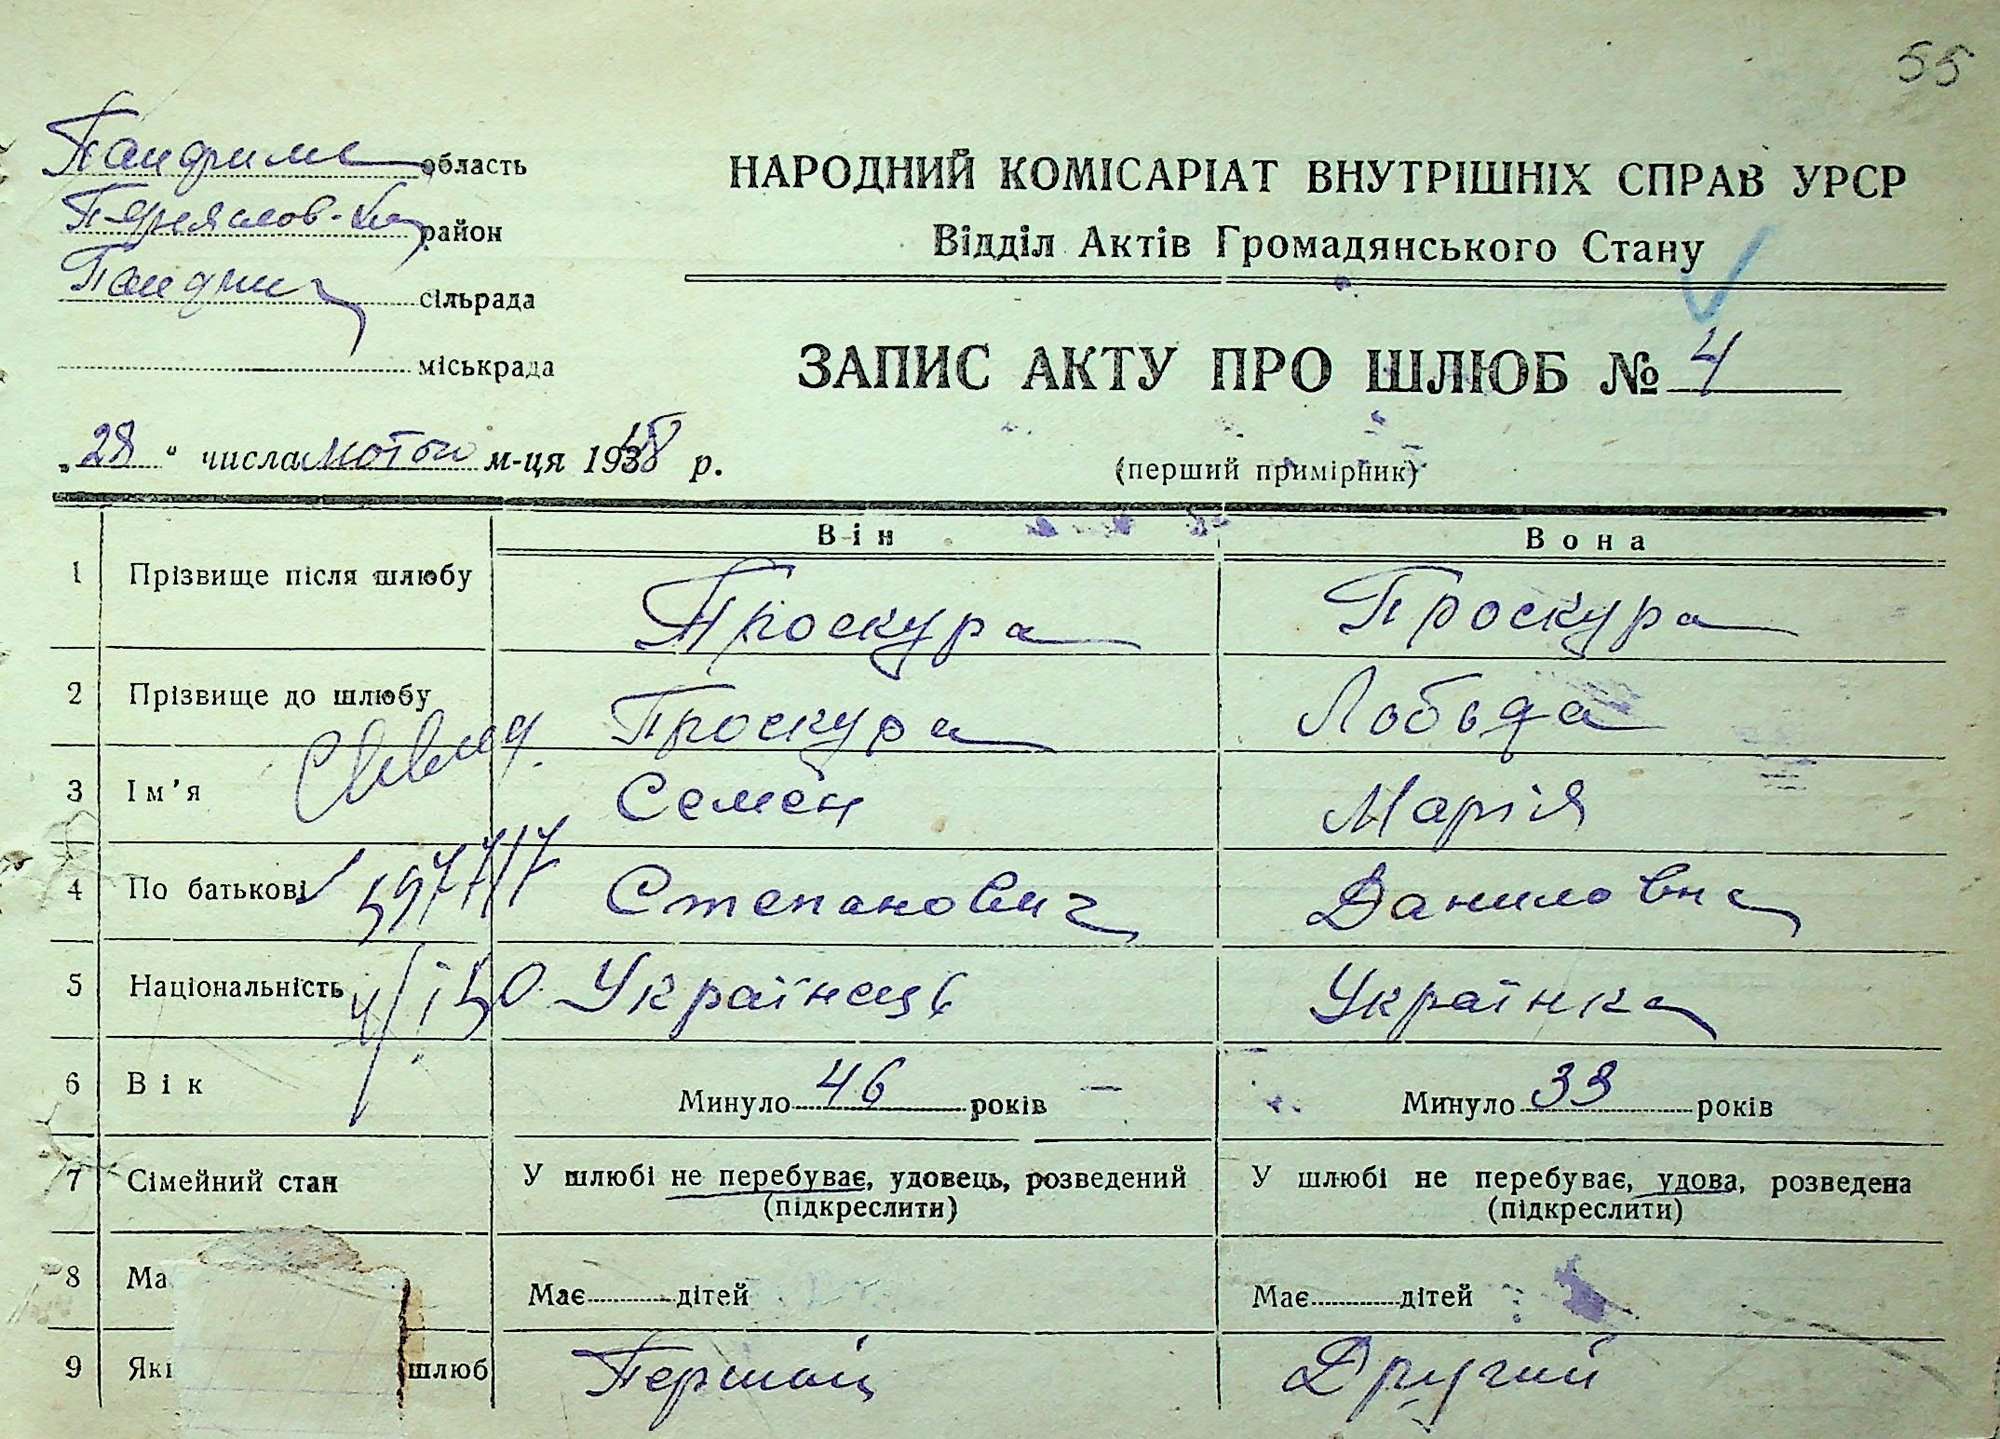 55
область
НАРОДНИЙ КОМІСАРІАТ ВНУТРІШНІХ СПРАВ УРСР
район
Відділ Актів Громадянського Стану
сільрада
міськрада
ЗАПИС АКТУ ПРО ШЛЮБ № 4
„28“ числа лютого м-ця 1948 р.
(перший примірник)
Він Вона
1 Прізвище після шлюбу Проскура Проскура
2 Прізвище до шлюбу Проскура Лобода
3 Ім’я Семен Марія
4 По батькові Степанович Даниловна
5 Національність Українець Українка
6 Вік Минуло 46 років Минуло 33 років
7 Сімейний стан У шлюбі не перебуває, удовець, розведений У шлюбі не перебуває, удова, розведена
(підкреслити) (підкреслити)
8 Ма Має дітей Має дітей
9 Які шлюб Перший Другий